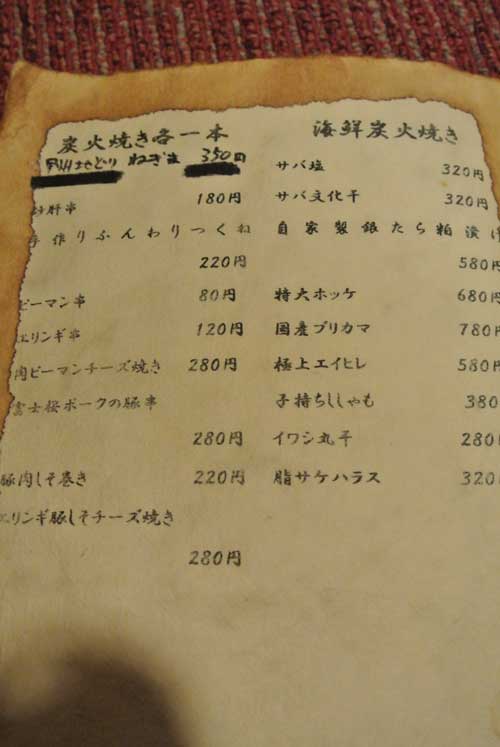 炭火焼き各一本
地どり ねぎま 350円
砂肝串 180円
手作りふんわりつくね
220円
ピーマン串 80円
エリンギ串 120円
肉ピーマンチーズ焼き 280円
富士桜ポークの豚串
280円
豚肉しそ巻き 220円
エリンギ豚しそチーズ焼き
280円
海鮮炭火焼き
サバ塩 320円
サバ文化干 320円
自家製銀たら粕漬け
580円
特大ホッケ 680円
国産ブリカマ 780円
極上エイヒレ 580円
子持ちししゃも 380
イワシ丸干 280
脂サケハラス 320